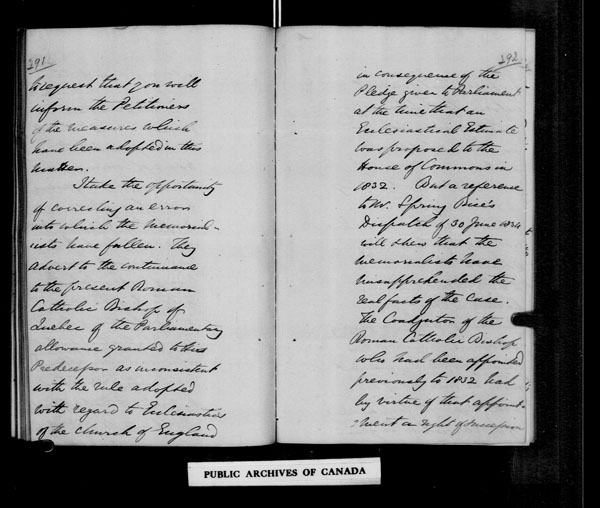 291
to request that you will
inform the Petitioners
of the measures which
have been adopted in this
matter.
I take the opportunity
of correcting an error
into which the Memorial-
ists have fallen. They
advert to the continuance
to the present Roman
Catholic Bishop of
Quebec of the Parliamentary
allowance granted to his
Predecessor as inconsistent
with the rule adopted
with regard to Ecclesiastics
of the Church of England
292
in consequence of the
Pledge given to Parliament
at the time that an
Ecclesiastical Estimate
was proposed to the
House of Commons in
1832. But a reference
to Mr. Spring Rice's
Dispatch of 30 June 1834
will shew that the
Memorialists have
misapprehended the
real facts of the Case.
The Coadjutor of the
Roman Catholic Bishop
who had been appointed
previously to 1832 had
by virtue of that appoint-
-ment a right of succession
PUBLIC ARCHIVES OF CANADA